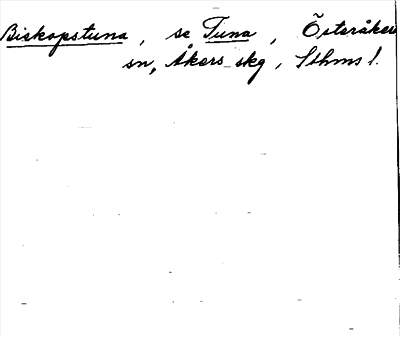 Biskopstuna, se Tuna, Österåkers
sn, Åkers skg, Sthms l.